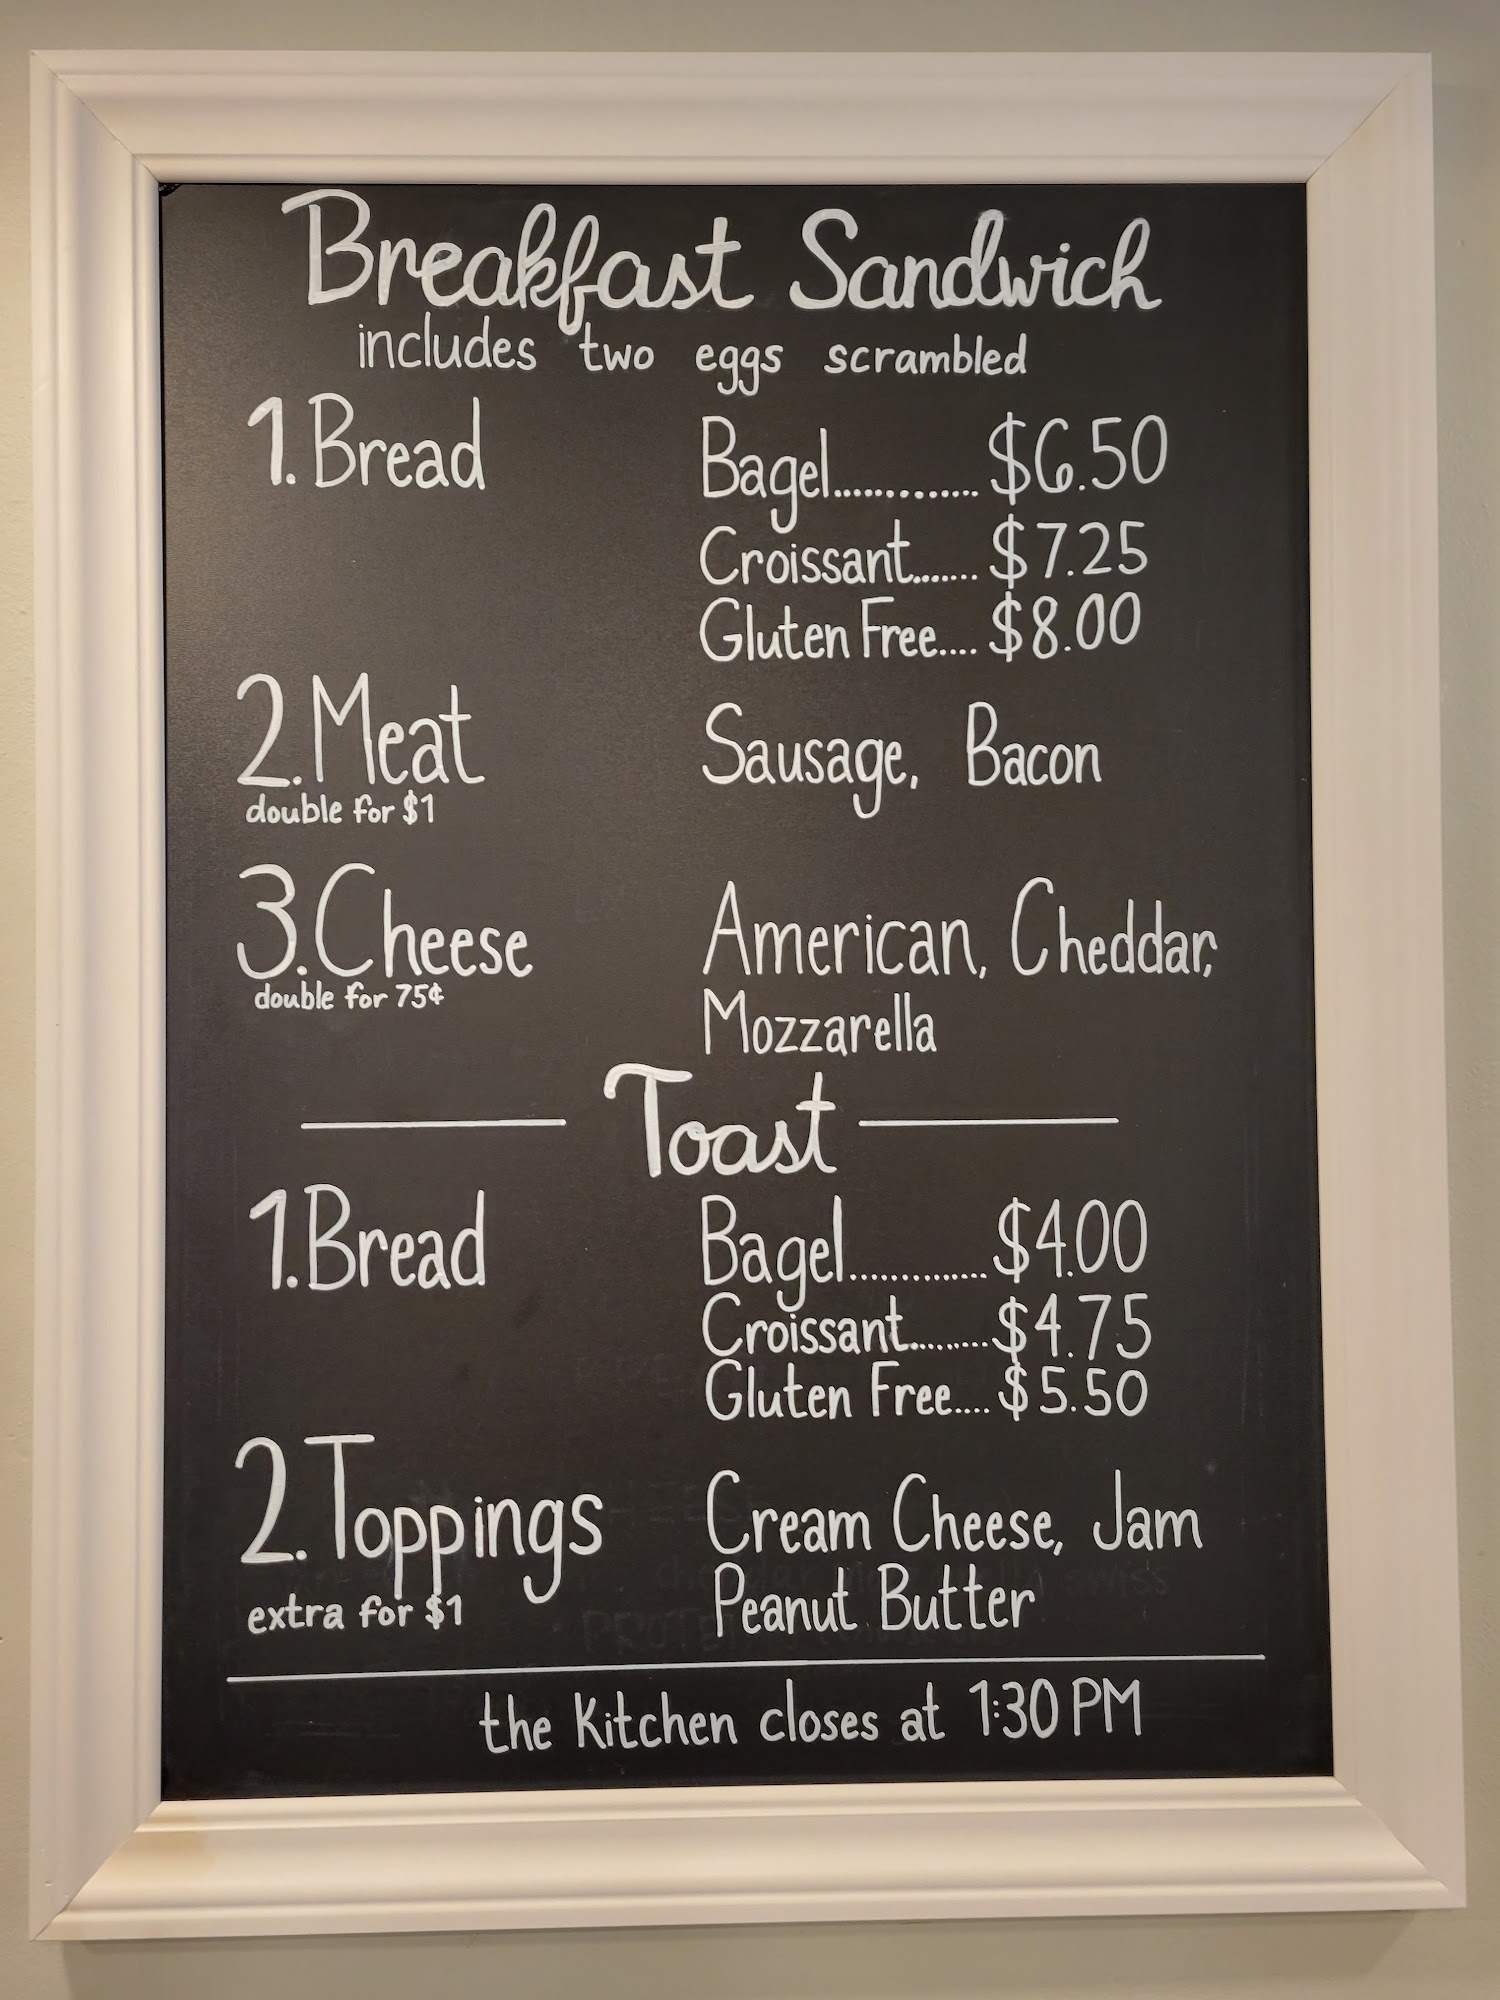 Breakfast Sandwich
includes two eggs scrambled
1. Bread Bagel.............. $6.50
Croissant....... $7.25
Gluten Free.... $8.00
2. Meat Sausage, Bacon
double for $1
3. Cheese American, Cheddar,
double for 75¢
Mozzarella
Toast
1. Bread Bagel.............. $4.00
Croissant......... $4.75
Gluten Free.... $5.50
2. Toppings Cream Cheese, Jam
extra for $1 Peanut Butter
the Kitchen closes at 1:30 PM